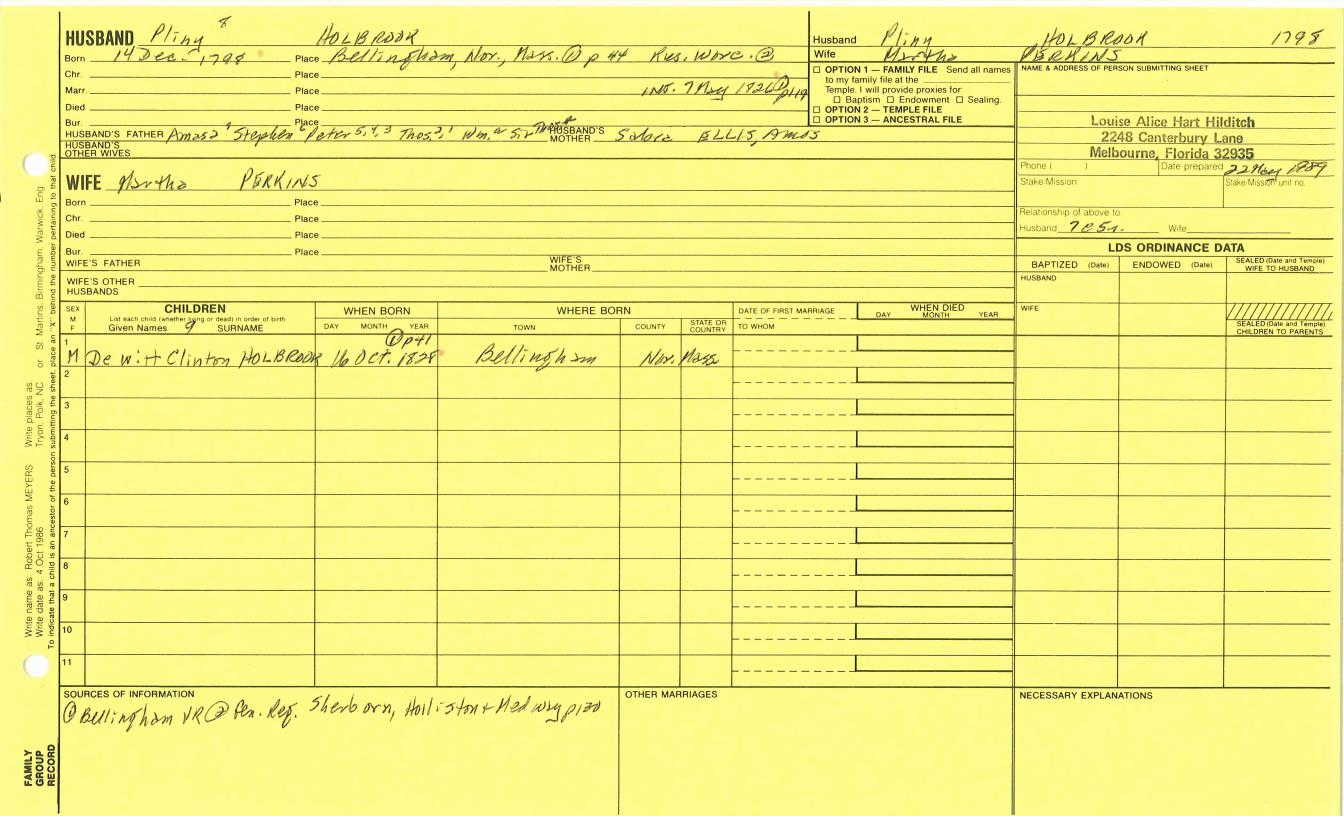 HUSBAND Pliny 8 HOLBROOK
Born 14 Dec. 1798 Place Bellingham, Nor., Mass. ① p 44 Res. Worc. ②
Chr. Place
Marr. Place int. 7 May 1826 ① p119
Died Place
Bur. Place
HUSBAND'S FATHER Amasa 7 Stephen 6 Peter 5,4,3 Thos. 2,1 Wm. a Sir Thos. HUSBAND'S MOTHER Sabra ELLIS, Amos
HUSBAND'S OTHER WIVES
WIFE Martha PERKINS
Born Place
Chr. Place
Died Place
Bur. Place
WIFE'S FATHER WIFE'S MOTHER
WIFE'S OTHER HUSBANDS
Husband Pliny HOLBROOK 1798
Wife Martha PERKINS
☐ OPTION 1 — FAMILY FILE Send all names
to my family file at the
Temple. I will provide proxies for
☐ Baptism ☐ Endowment ☐ Sealing.
☐ OPTION 2 — TEMPLE FILE
☐ OPTION 3 — ANCESTRAL FILE
NAME & ADDRESS OF PERSON SUBMITTING SHEET
Louise Alice Hart Hilditch
2248 Canterbury Lane
Melbourne, Florida 32935
Phone ( ) Date prepared 22 May 1989
Stake/Mission Stake/Mission unit no.
Relationship of above to
Husband 7C5r. Wife
LDS ORDINANCE DATA
BAPTIZED (Date) ENDOWED (Date) SEALED (Date and Temple) WIFE TO HUSBAND
HUSBAND
WIFE
SEALED (Date and Temple) CHILDREN TO PARENTS
SEX M F
CHILDREN
List each child (whether living or dead) in order of birth
Given Names 9 SURNAME
WHEN BORN
DAY MONTH YEAR
WHERE BORN
TOWN COUNTY STATE OR COUNTRY
DATE OF FIRST MARRIAGE
TO WHOM
WHEN DIED
DAY MONTH YEAR
① p41
1 M De Witt Clinton HOLBROOK 16 OCT. 1828 Bellingham Nor. Mass.
2
3
4
5
6
7
8
9
10
11
SOURCES OF INFORMATION
① Bellingham VR ② Gen. Reg. Sherborn, Holliston & Medway p120
OTHER MARRIAGES
NECESSARY EXPLANATIONS
Write name as: Robert Thomas MEYERS Write places as: Tryon, Polk, NC or St. Martins, Birmingham, Warwick, Eng.
Write date as: 4 Oct 1986
To indicate that a child is an ancestor of the person submitting the sheet, place an "X" behind the number pertaining to that child
FAMILY
GROUP
RECORD